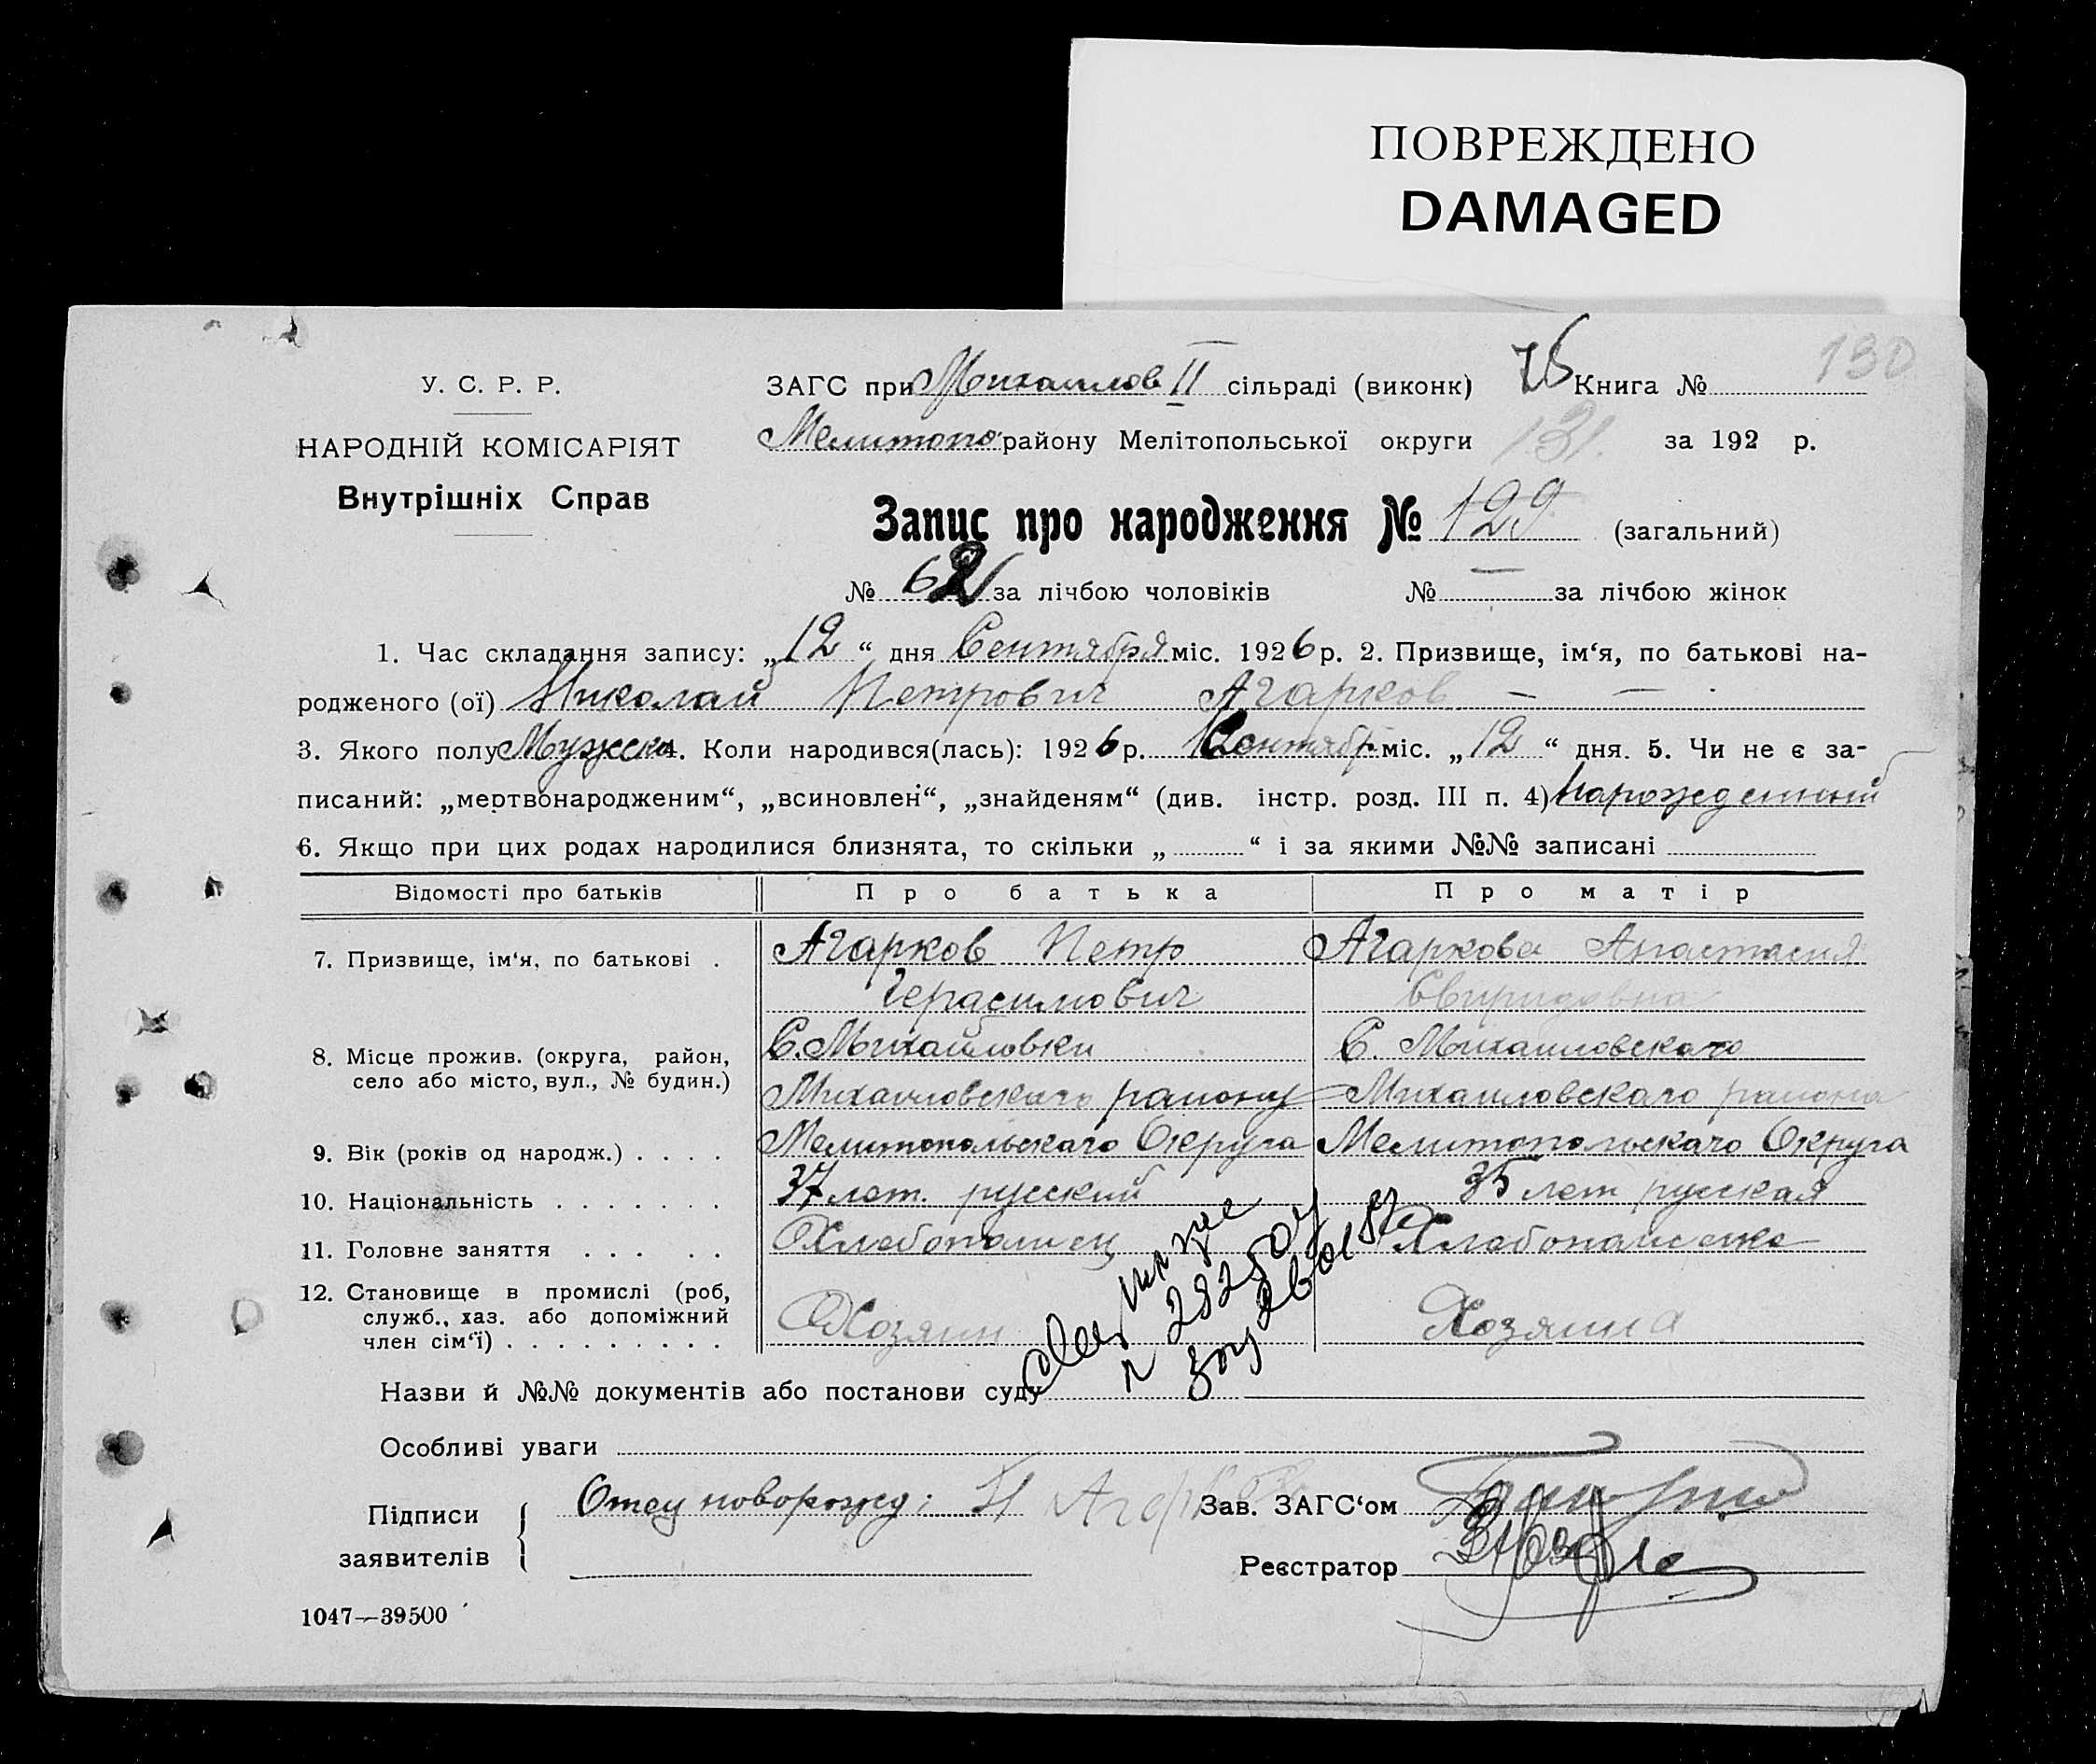 ПОВРЕЖДЕНО
DAMAGED
130
У. С. Р. Р.
НАРОДНІЙ КОМІСАРІЯТ
Внутрішніх Справ
ЗАГС при Михайлов II сільраді (виконк) 76 Книга №
Мелитопо району Мелітопольської округи 131. за 192 р.
Запис про народження № 129 (загальний)
№ 62 за лічбою чоловіків № — за лічбою жінок
1. Час складання запису: „12“ дня Сентября міс. 1926 р. 2. Призвище, ім‘я, по батькові на-
родженого (ої) Николай Петрович Агарков — —
3. Якого полу Мужско 4. Коли народився(лась): 1926 р. Сентябр міс. „12“ дня. 5. Чи не є за-
писаний: „мертвонародженим“, „всиновлен“, „знайденям“ (див. інстр. розд. III п. 4)
6. Якщо при цих родах народилися близнята, то скільки „ “ і за якими №№ записані
Відомості про батьків Про батька Про матір
7. Призвище, ім‘я, по батькові . Агарков Петр Агаркова Анастасия
Герасимович Свиридовна
С. Михайловки С. Михаиловскаго
8. Місце прожив. (округа, район,
село або місто, вул., № будин.)
Михаиловскаго району Михаиловскаго района
9. Вік (років од народж.) . . . . Мелитопольскаго Округа Мелитопольскаго Округа
10. Національність . . . . . . . 37 лет. русский 35 лет русская
11. Головне заняття . . . . . Хлебопашец
12. Становище в промислі (роб,
служб., хаз. або допоміжний
член сім‘ї) . . . . . . . . . Хозяин Хозяина
Назви й №№ документів або постанови суду
Особливі уваги
Підписи
заявителів
Отец новорожд: П Агарков
Зав. ЗАГС‘ом
Реєстратор
1047—39500